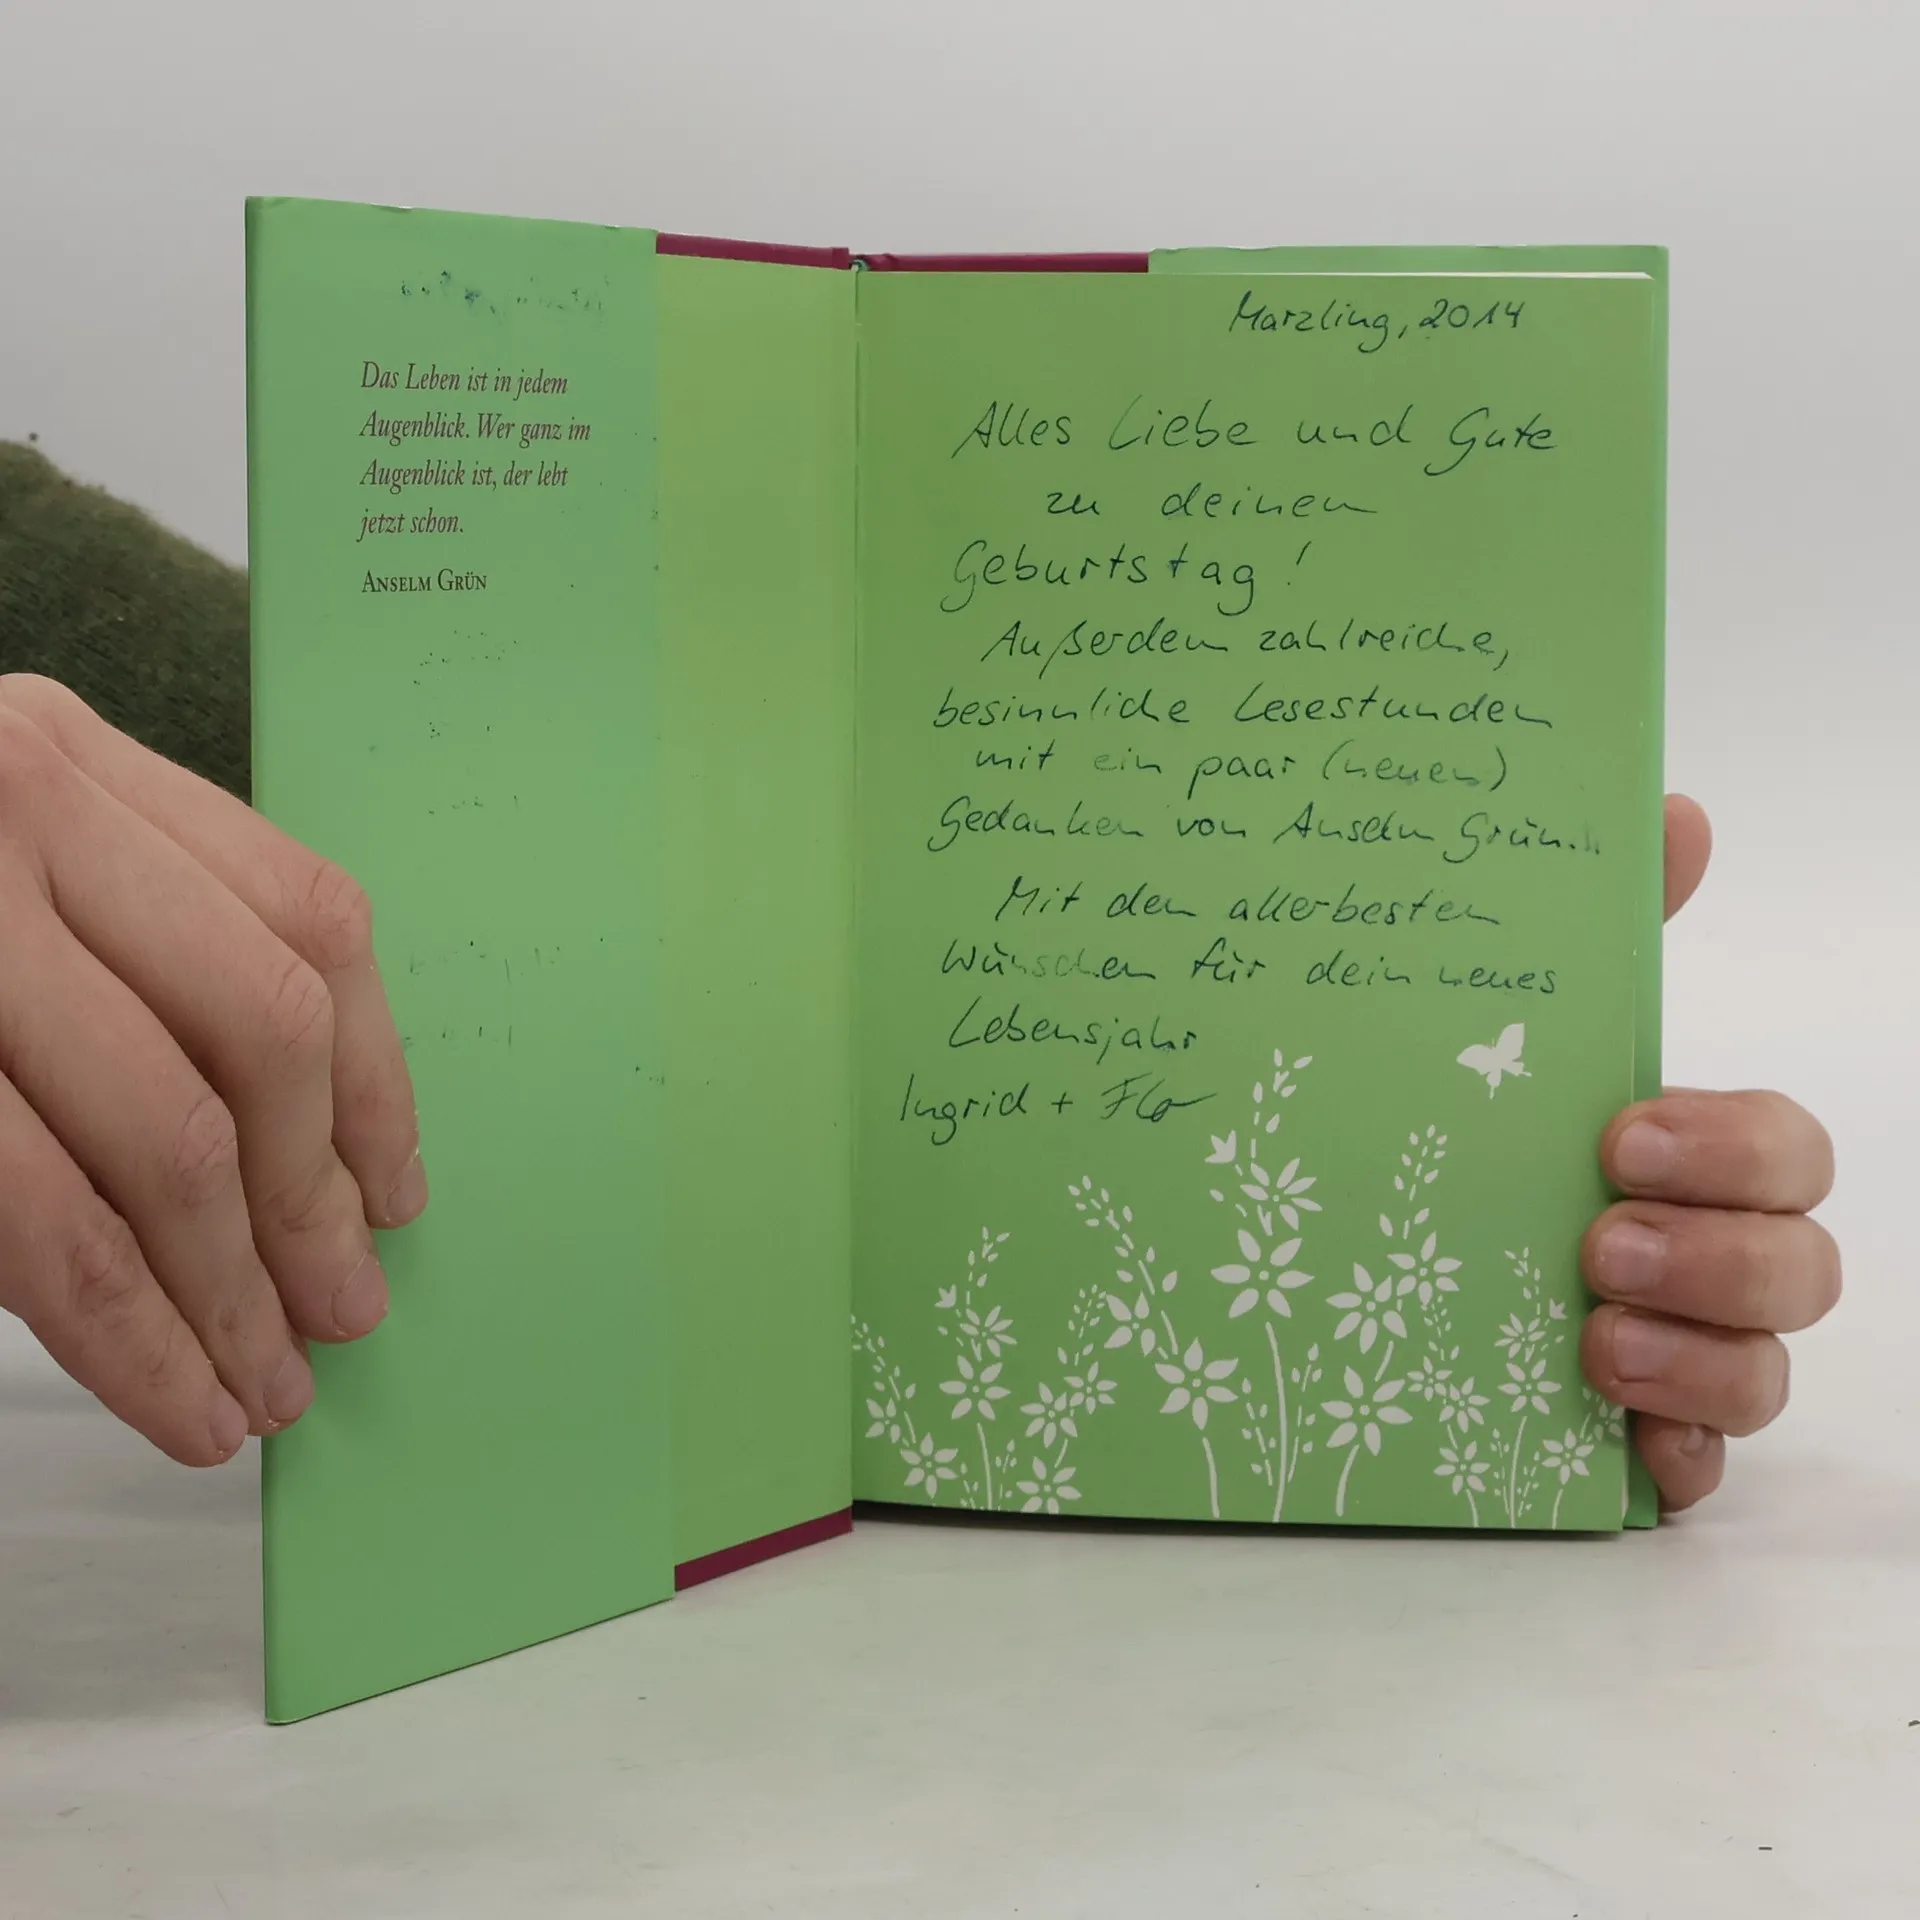 Das Leben ist in jedem
Augenblick. Wer ganz im
Augenblick ist, der lebt
jetzt schon.
ANSELM GRÜN
Marzling, 2014
Alles Liebe und Gute
zu deinem
Geburtstag!
Außerdem zahlreiche,
besinnliche Lesestunden
mit ein paar (neuen)
Gedanken von Anselm Grün...
Mit den allerbesten
Wünschen für dein neues
Lebensjahr
Ingrid + Flo